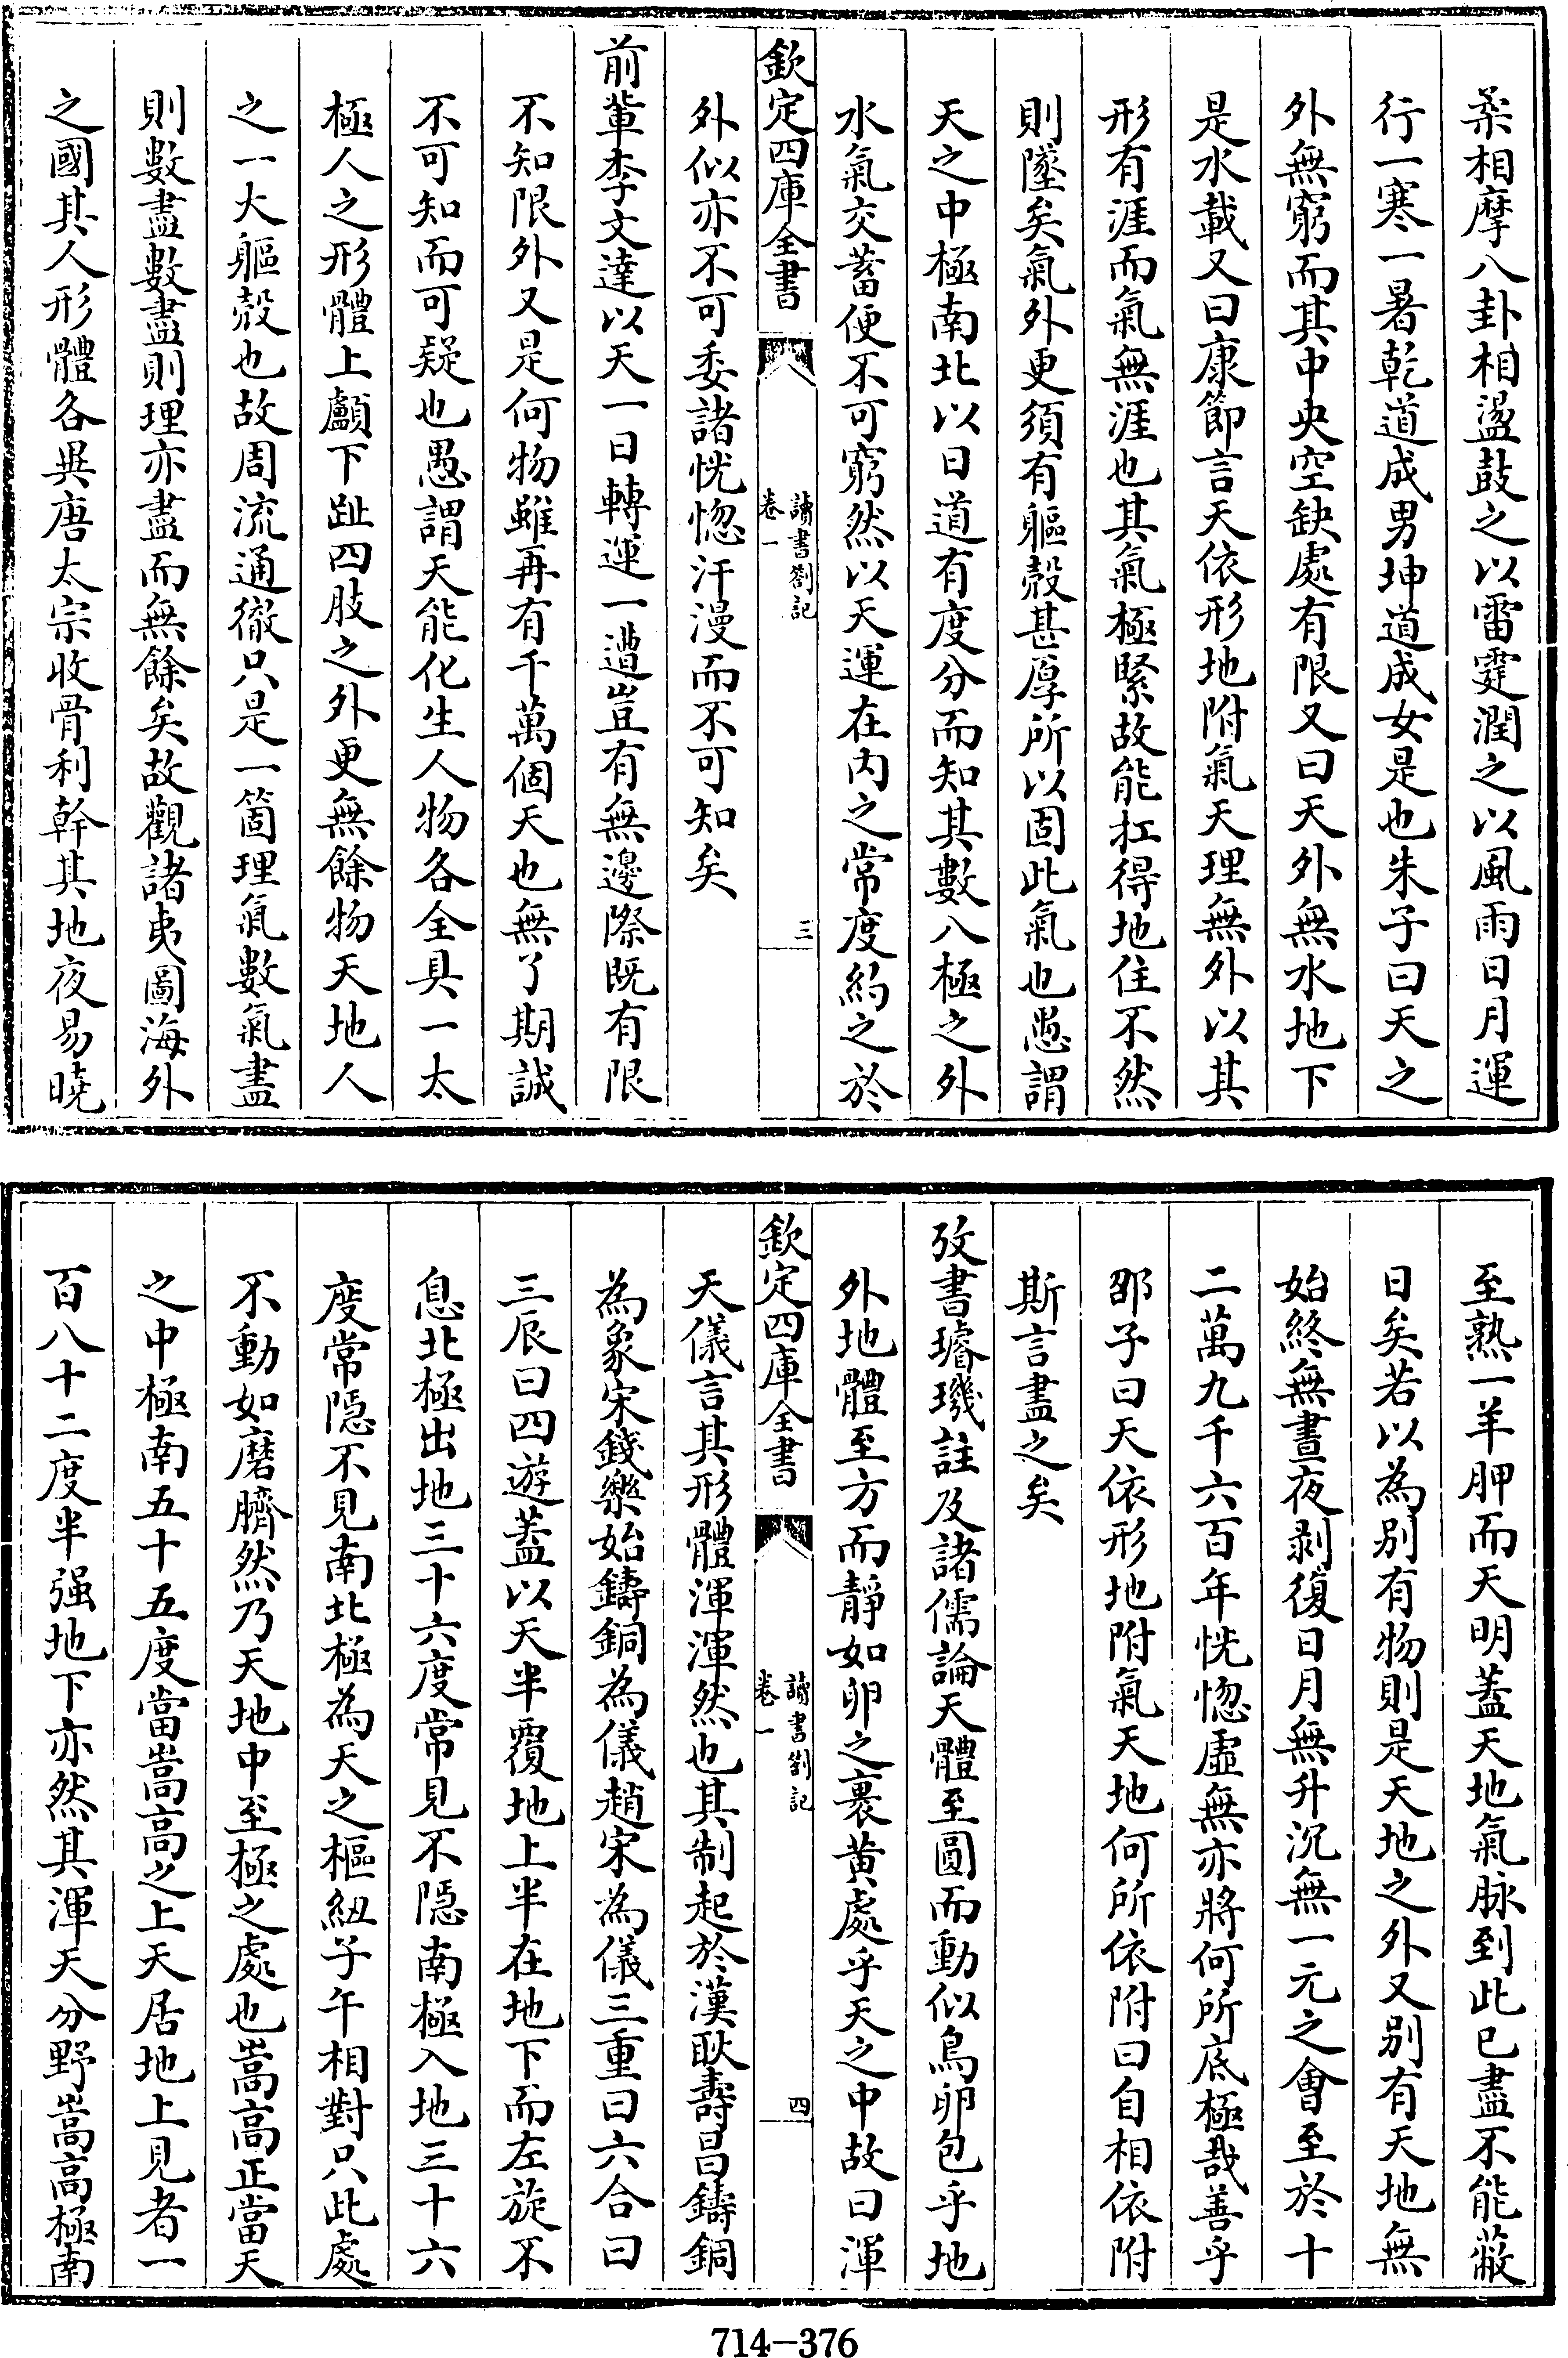 柔相摩八卦相盪鼓之以雷霆潤之以風雨日月運
行一寒一暑乾道成男坤道成女是也朱子曰天之
外無窮而其中央空缺處有限又曰天外無水地下
是水載又曰康節言天依形地附氣天理無外以其
形有涯而氣無涯也其氣極緊故能扛得地住不然
則墜矣氣外更須有軀殼甚厚所以固此氣也愚謂
天之中極南北以日道有度分而知其數八極之外
水氣交蓄便不可窮然以天運在内之常度約之於
欽定四庫全書
讀書劄記
卷一
三
外似亦不可委諸恍惚汗漫而不可知矣
前輩李文達以天一日轉運一遭豈有無邊際既有限
不知限外又是何物雖再有千萬個天也無了期誠
不可知而可疑也愚謂天能化生人物各全具一太
極人之形體上顱下趾四肢之外更無餘物天地人
之一大軀殼也故周流通徹只是一箇理氣數氣盡
則數盡數盡則理亦盡而無餘矣故觀諸夷圖海外
之國其人形體各異唐太宗收骨利幹其地夜易曉
至熟一羊胛而天明蓋天地氣脉到此已盡不能蔽
日矣若以為别有物則是天地之外又别有天地無
始終無晝夜剥復日月無升沉無一元之會至於十
二萬九千六百年恍惚虚無亦將何所底極哉善乎
邵子曰天依形地附氣天地何所依附曰自相依附
斯言盡之矣
攷書璿璣註及諸儒論天體至圓而動似鳥卵包乎地
外地體至方而靜如卵之裹黄處乎天之中故曰渾
欽定四庫全書
讀書劄記
卷一
四
天儀言其形體渾渾然也其制起於漢耿壽昌鑄銅
為象宋錢樂始鑄銅為儀趙宋為儀三重曰六合曰
三辰曰四遊蓋以天半覆地上半在地下而左旋不
息北極出地三十六度常見不隱南極入地三十六
度常隱不見南北極為天之樞紐子午相對只此處
不動如磨臍然乃天地中至極之處也嵩高正當天
之中極南五十五度當嵩高之上天居地上見者一
百八十二度半强地下亦然其渾天分野嵩高極南
714-376